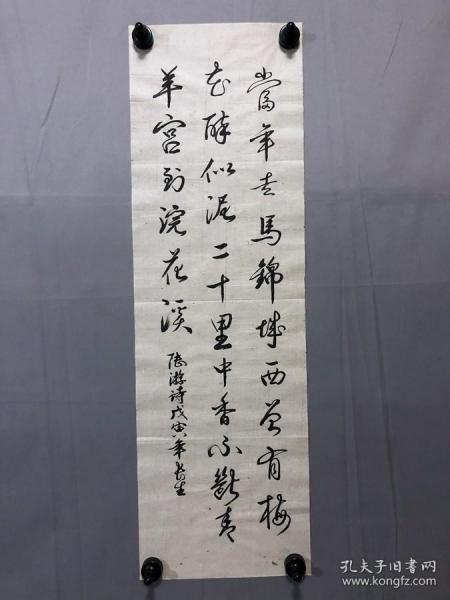 當年走馬錦城西曾有梅
花醉似泥二十里中香不斷青
羊宮到浣花溪
陸游詩戊寅年長生
孔夫子旧书网
www.kongfz.com